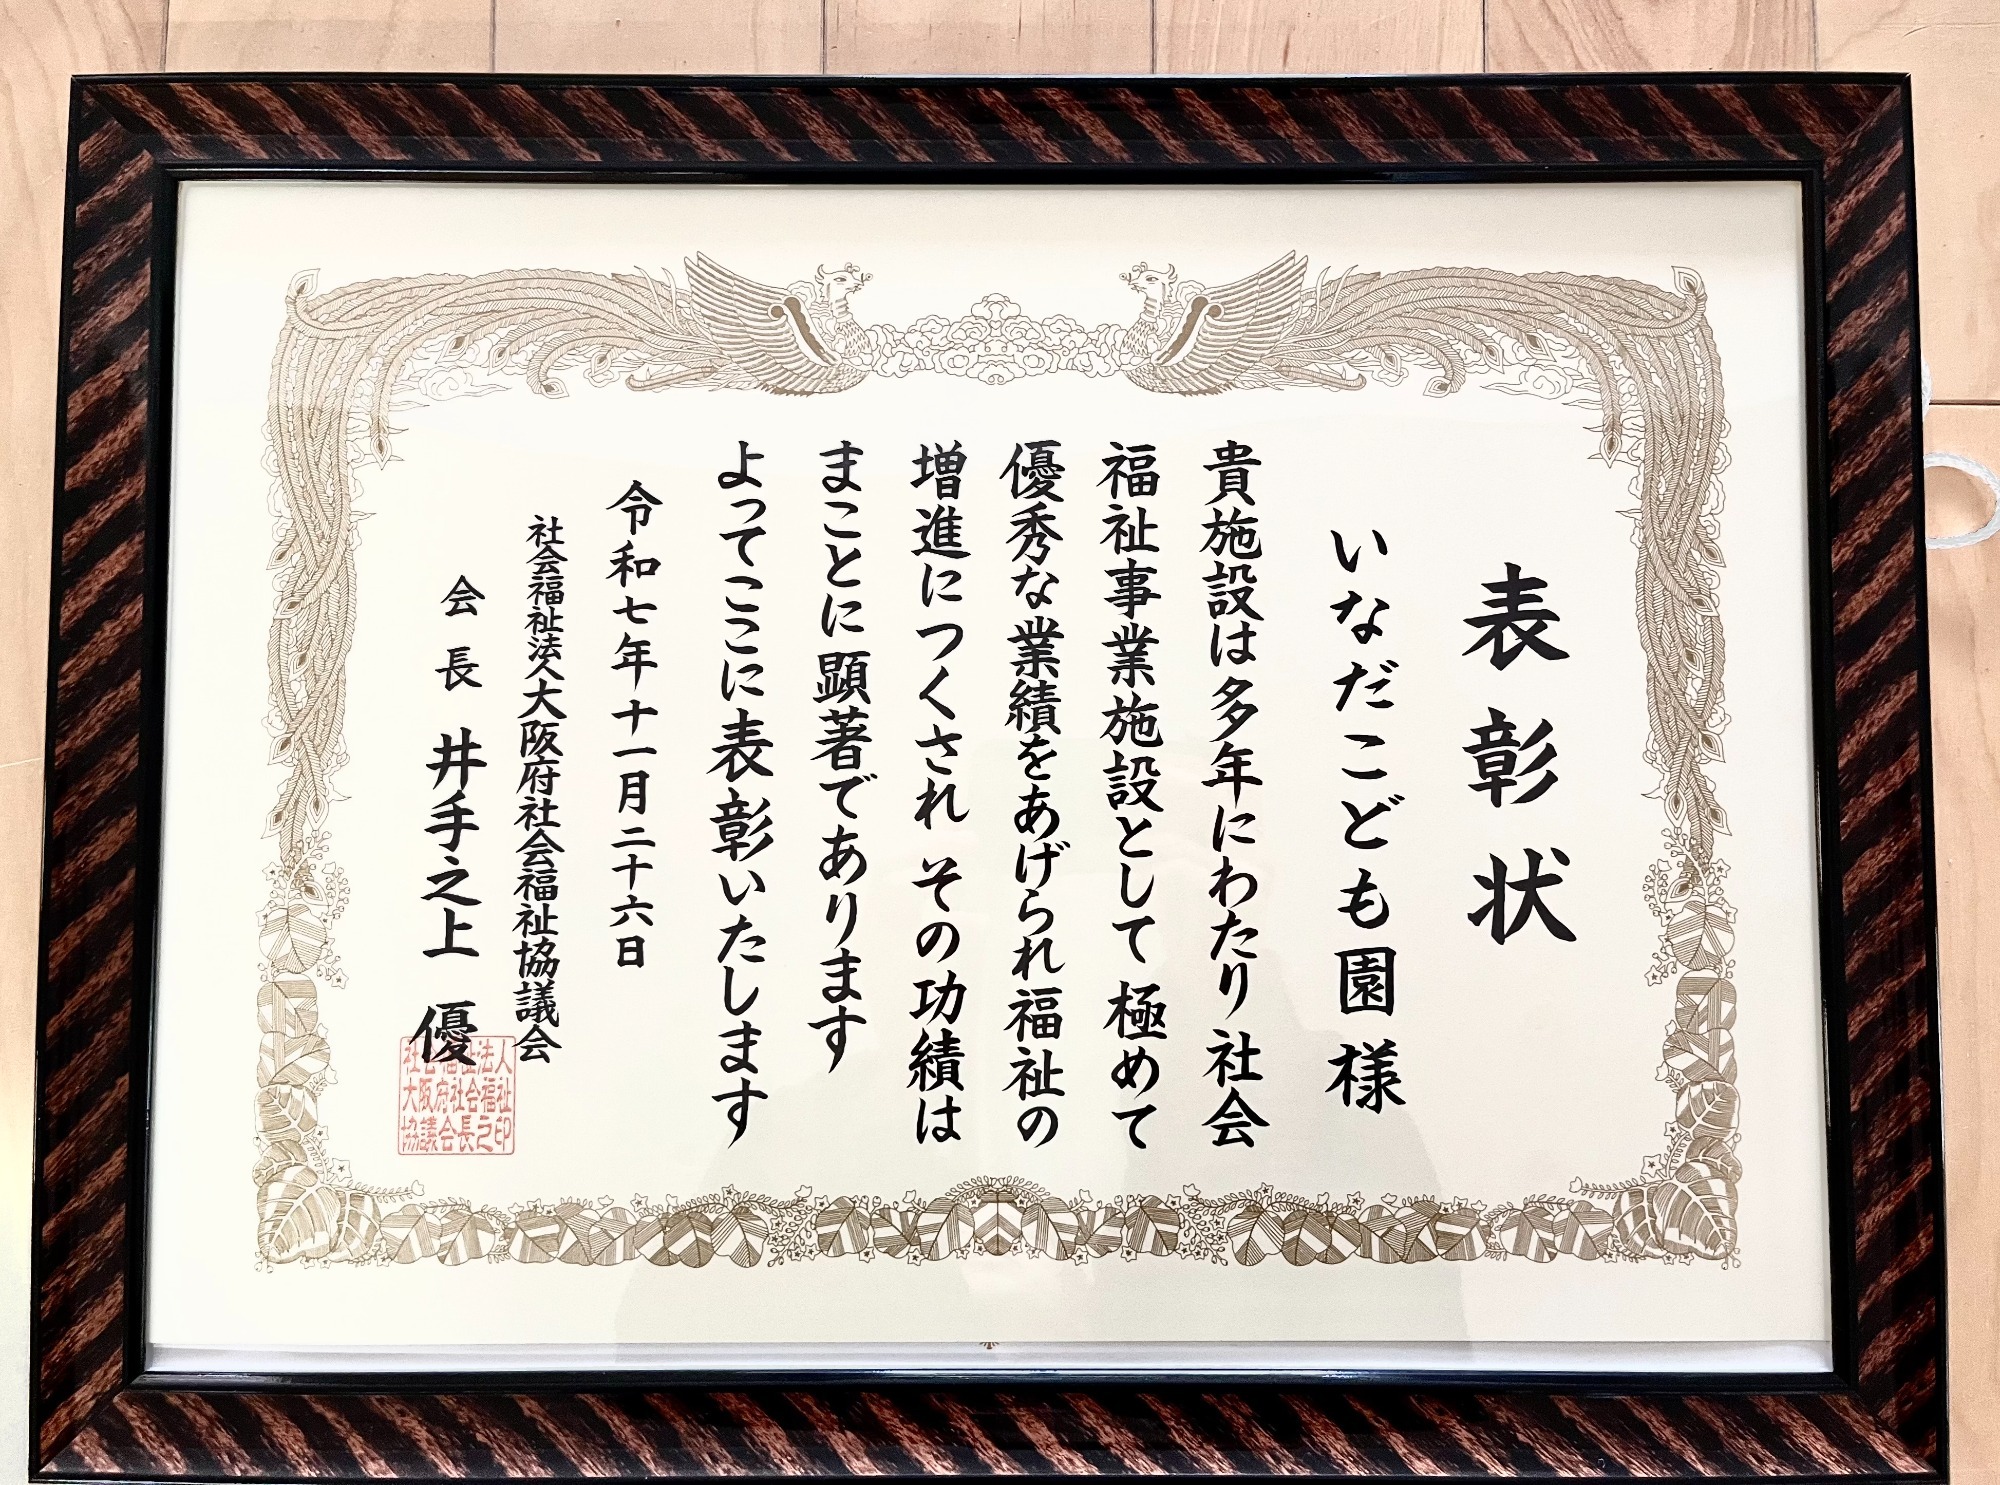 表彰状
いなだこども園様
貴施設は多年にわたり社会
福祉事業施設として極めて
優秀な業績をあげられ福祉の
増進につくされ その功績は
まことに顕著であります
よってここに表彰いたします
令和七年十一月二十六日
社会福祉法人大阪府社会福祉協議会
会長 井手之上 優
社会福祉法人
大阪府社会福祉
協議会長之印